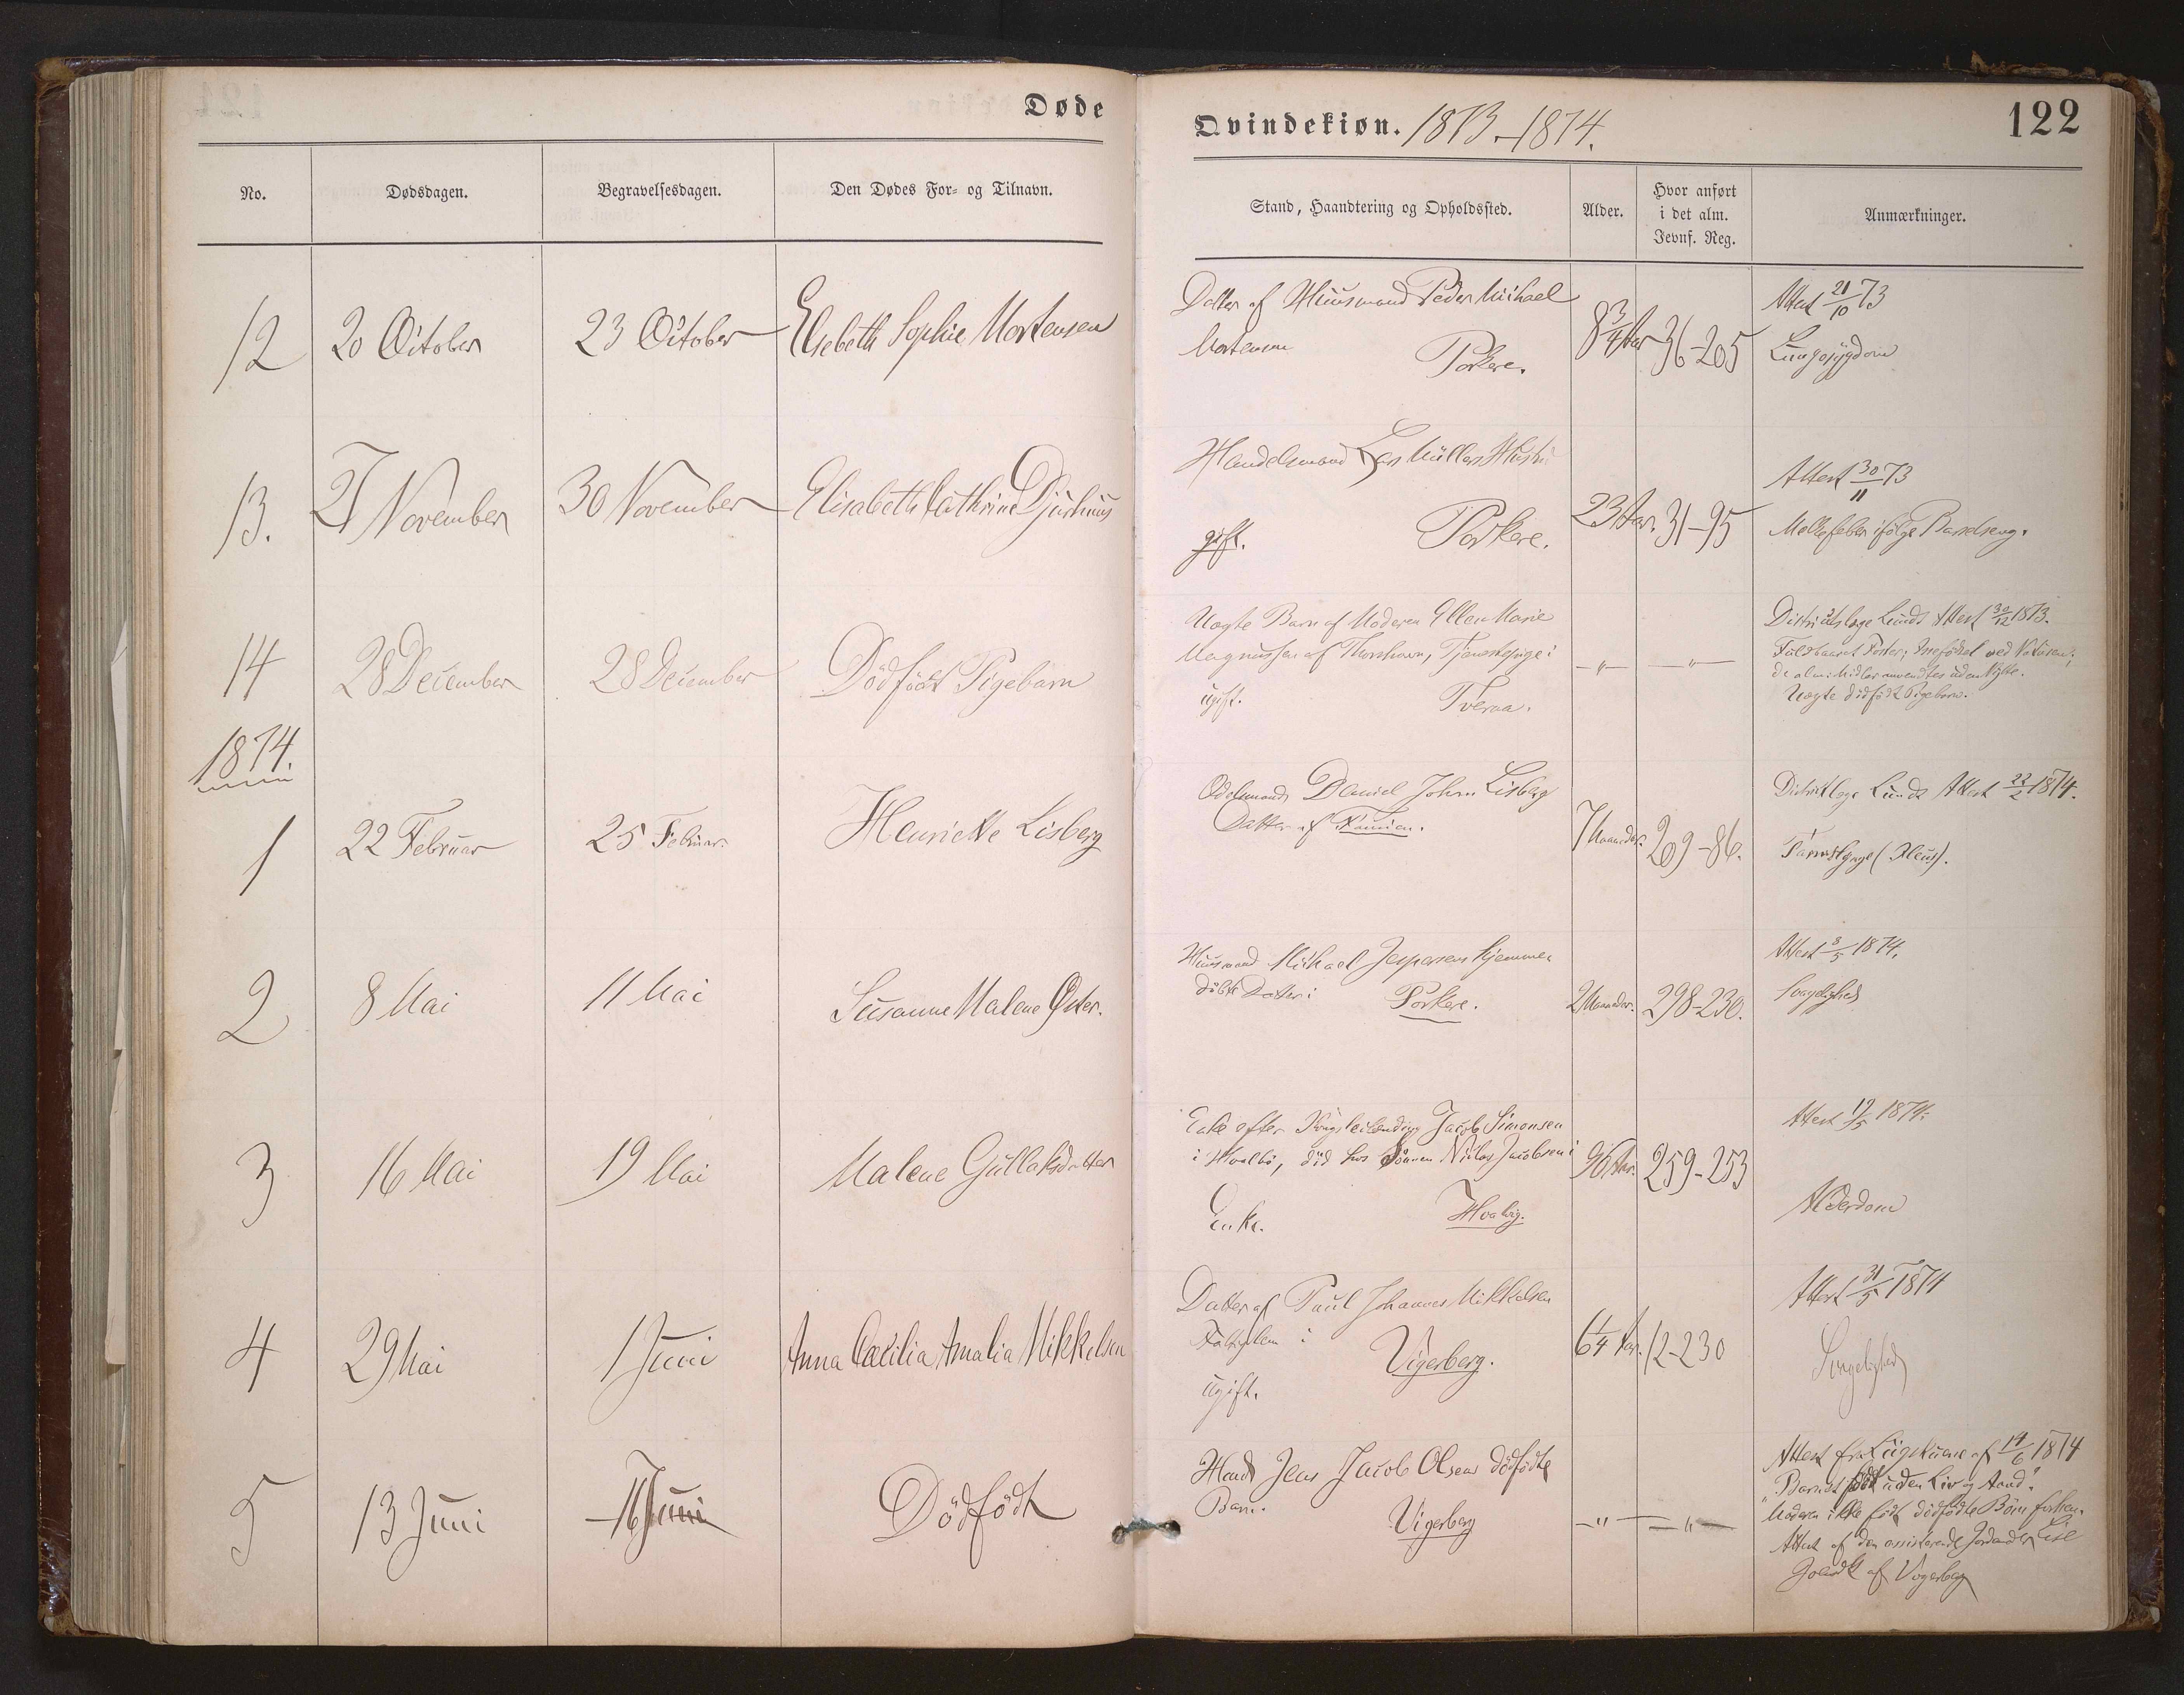 Døde
Qvindekiøn. 1873.-1874.
122
No.
Dødsdagen.
Begravelsesdagen.
Den Dødes For- og Tilnavn.
Stand, Haandtering og Opholdssted.
Alder.
Hvor anført
i det alm.
Jevnf. Reg.
Anmærkninger.
12
20 October
23 October
Elsebeth Sophie Mortensen
Datter af Huusmand Peder Michael
Mortensen
Porkere.
8 3/4 Aar
36-205
Attest 21/10 73
Lungesygdom
13.
27 November
30 November
Elisabeth Cathrine Djurhuus
Handelsmand Müllers Hustru
gift.
Porkere.
23 Aar.
31-95
Attest 30/11 73
ifölge Barselseng.
14
28 December
28 December
Dödfödt Pigebarn
Uægte Barn af Moderen Ellen Marie
Magnussen af Thorshavn, Tjenestepige i
ugift.
Tveraa.
-"-
-"-
Districtslæge Lunds Attest 30/12 1873.
Fuldbaaret Foster; ved Naturen;
de alm. Midler anvendtes uden Nytte.
Uægte dödfödt Pigebarn.
1874.
1
22 Februar
25 Februar.
Henriette Lisberg
Odelsmand Daniel Johan Lisberg
Datter af Famien.
7 Maaneder.
209-86.
Districtslæge Lunds Attest 22/2 1874.
Tarmslynge (Ileus).
2
8 Mai
11 Mai
Susanne Malene Öster.
Huusmand Michael Jespersens hjemme
döbte Datter i
Porkere.
2 Maaneder.
298-230.
Attest 8/5 1874.
Svagelighed
3
16 Mai
19 Mai
Malene Gullaksdatter
Enke efter Jacob Simonsen
i Hvalbö, död hos Sönnen Niclas Jacobsen i
Enke.
Hvalvig.
96 Aar.
259-253
Attest 19/5 1874.
Alderdom
4
29 Mai
1 Juni
Anna Cæcilia Amalia Mikkelsen
Datter af Poul Johannes Mikkelsen
i
Vigerberg.
ugift.
6 1/4 Aar.
12-230
Attest 31/5 1874
Svagelighed
5
13 Juni
16 Juni
Dödfödt
Jens Jacob Olsens dödfödte
Barn.
Vigerberg
-"-
-"-
Attest fra Liigskuerne af 14/6 1874
"Barnet födt uden Liv og Aand".
Moderen ikke födt dödfödte Börn forhen.
Attest af den assisterende Jordemoder Lise
af Vigerberg